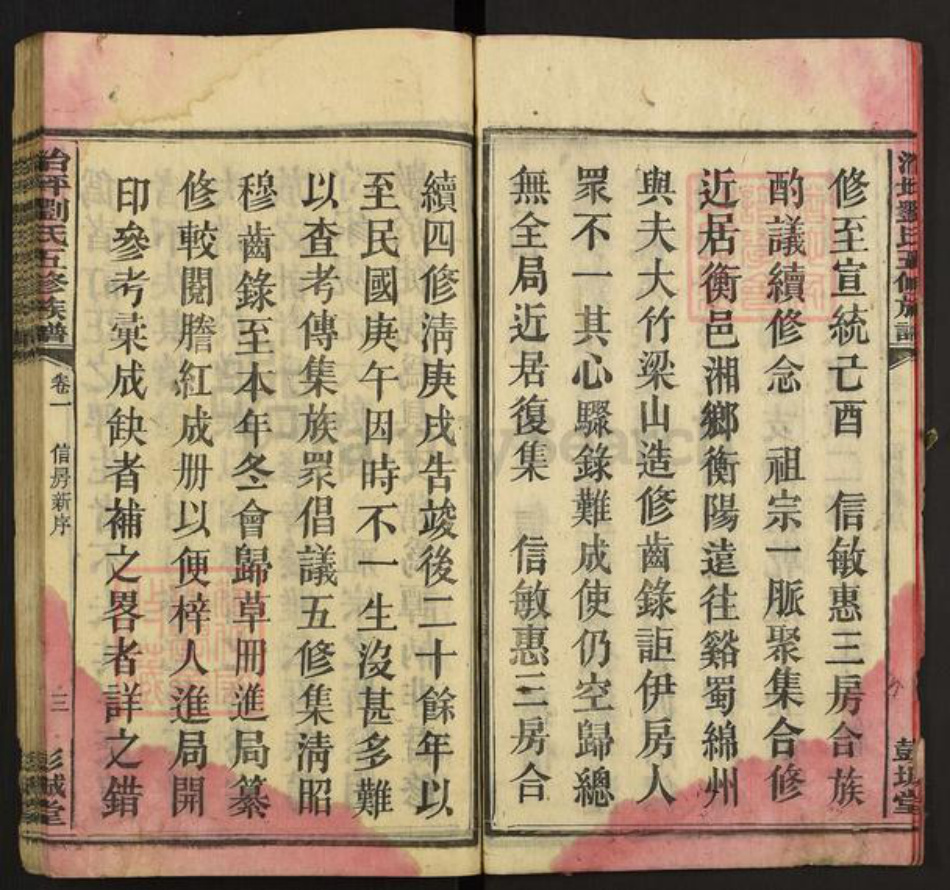 修至宣統己酉　信敏惠三房合族
酌議續修念　祖宗一脈聚集合修
近居衡邑湘鄉衡陽遠往谿蜀綿州
與夫大竹梁山造修齒錄詎伊房人
眾不一其心驟錄難成使仍空歸總
無全局近居復集　信敏惠三房合
續四修淸庚戌告竣後二十餘年以
至民國庚午因時不一生沒甚多難
以查考傳集族眾倡議五修集淸昭
穆齒錄至本年冬會歸草冊進局纂
修較閱謄紅成册以便梓人進局開
印參考彙成缺者補之畧者詳之錯
治坪劉氏五修族譜
卷一
信房新序
三
彭城堂